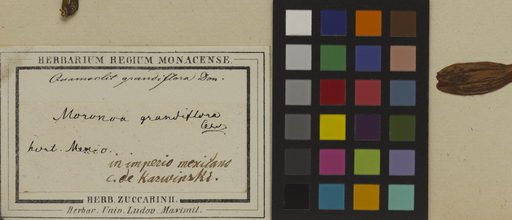 HERBARIUM REGIUM MONACENSE.
Quamoclit grandiflora Don.
Moronoa grandiflora
hort. Mexico...
in imperio mexicano
c. de Karwinski.
HERB. ZUCCARINII.
Herbar. Univ. Ludov. Maximil.